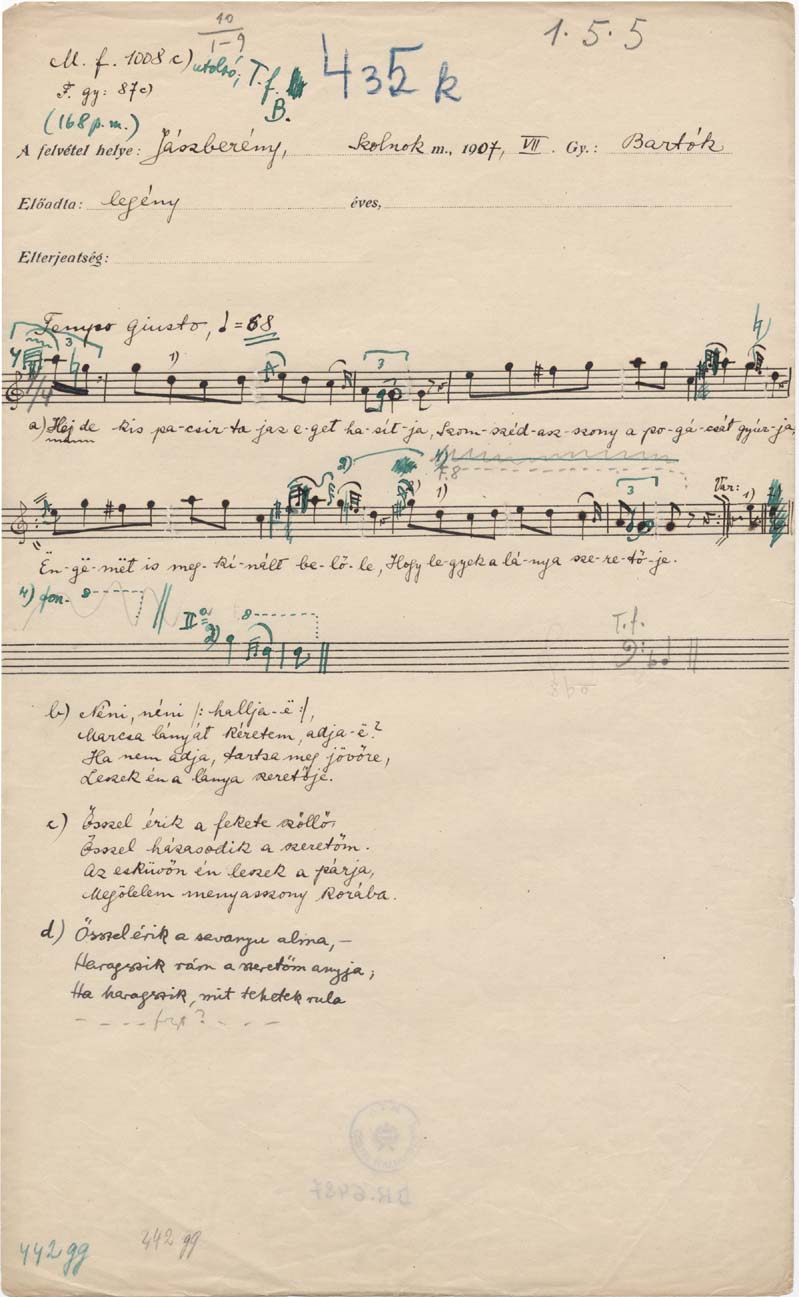 10
1-9
1.5.5
M. f. 1008 c) utolsó; T.f.
F. gy: 87c) B.
435 k
(168 p.m.)
A felvétel helye: Jászberény, Szolnok m., 1907, VII. Gy.: Bartók
Előadta: legény éves,
Elterjedtség:
Tempo giusto, ♩=68
3 1) 3
a) Hej de kis pa-csir-ta jaz e-get ha-sít-ja, Szom-széd-asz-szony a po-gá-csát gyúr-ja,
2) 1) 3 Var: 1)
Ën-gë-mët is meg-kí-nált be-lő-le, Hogy le-gyek a lá-nya sze-re-tő-je.
4) fon. 8
II. 8
T.f.
b) Néni, néni /: hallja-ë :/,
Marcsa lányát kéretem, adja-ë?
Ha nem adja, tartsa meg jövőre,
Leszek én a lánya szeretője.
c) Ősszel érik a fekete szőllő,
Ősszel házasodik a szeretőm.
Az esküvőn én leszek a párja,
Megölelem menyasszony korába.
d) Ősszel érik a savanyu alma, –
Haragszik rám a szeretőm anyja;
Ha haragszik, mit tehetek rula
D.R. 6487
442 gg 442 gg